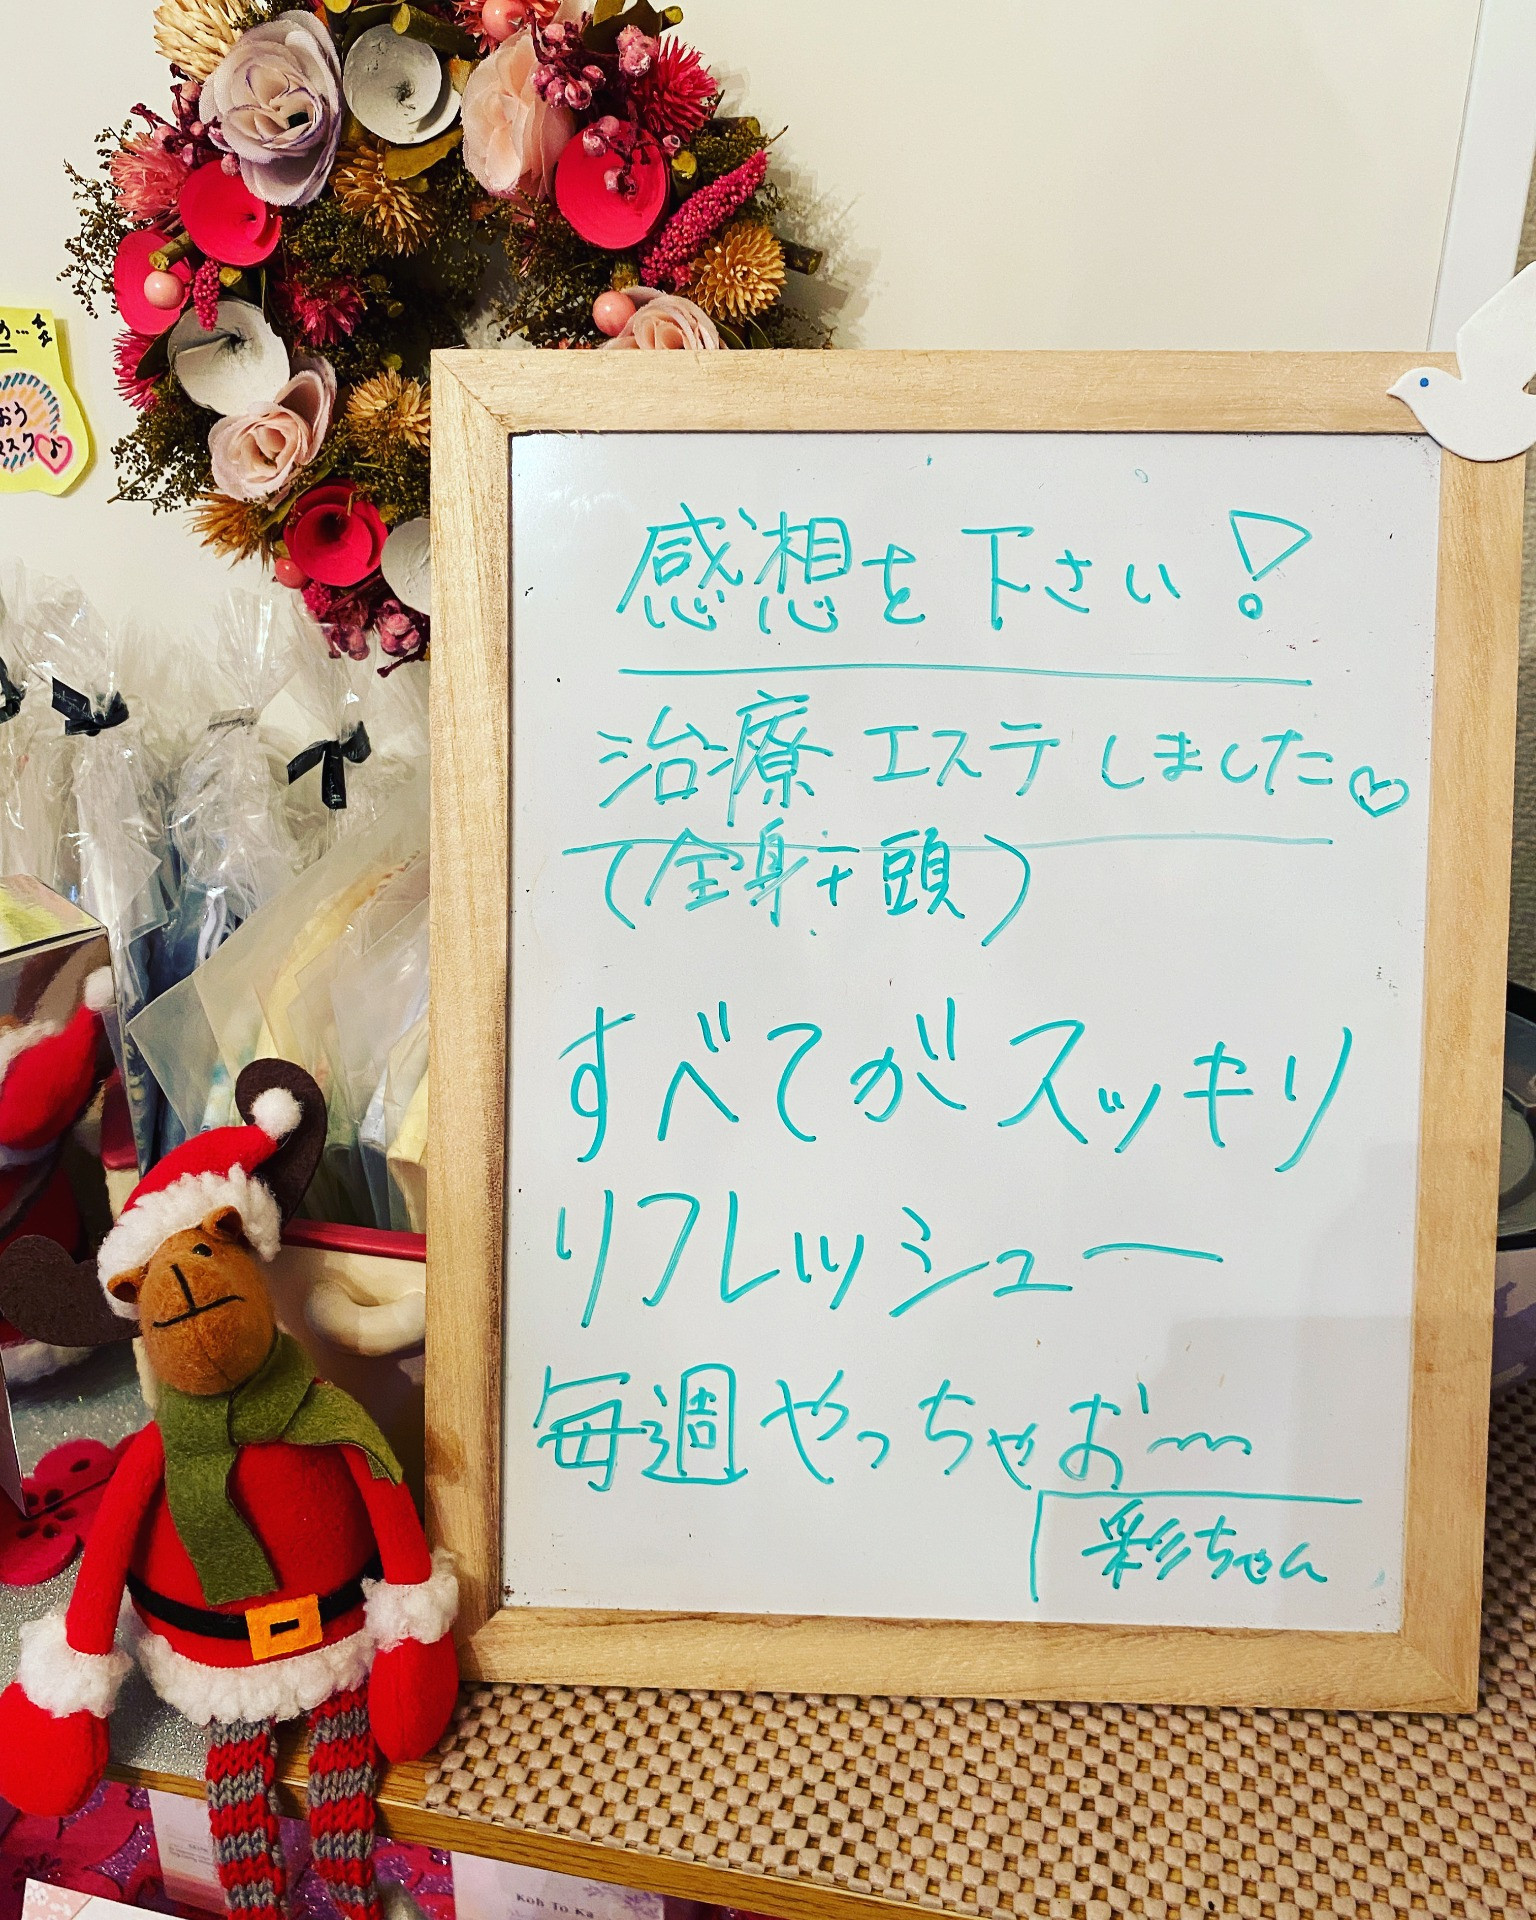 め…
おう
マスク♪
感想を下さい!
治療エステしました♡
(全身+頭)
すべてがスッキリ
リフレッシュー
毎週やっちゃお〜
彩ちゃん
Koh To Ka